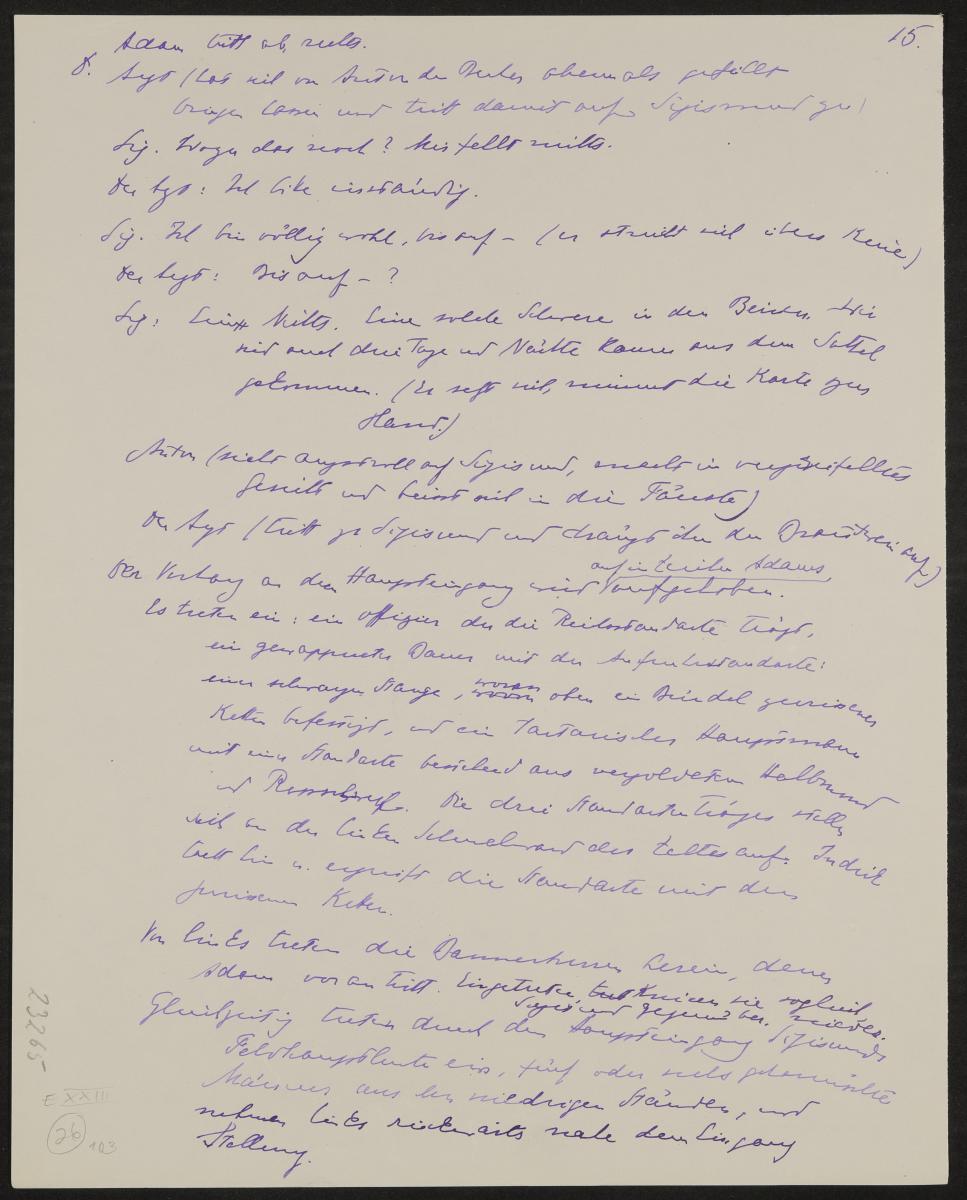 15.
Adam tritt ab, rechts.
Arzt (hat sich von Anton den Becher abermals gefüllt
bringen lassen und tritt damit auf Sigismund zu)
Sig. Wozu das noch? Mir fehlt nichts.
Der Arzt: Ich bitte inständig.
Sig. Ich bin völlig wohl, bis auf – (er streicht sich übers Knie)
Der Arzt: Bis auf – ?
Sig: Nichts. Eine solche Schwere in den Beinen. Wir
sind auch drei Tage und Nächte kaum aus dem Sattel
gekommen. (Er setzt sich, nimmt die Karte zur
Hand.)
Anton (sieht angstvoll auf Sigismund, macht ein verzweifeltes
Gesicht und beisst sich in die Fäuste)
Der Arzt (tritt zu Sigismund und drängt ihm den auf)
auf ein Zeichen Adams,
Der Vorhang an dem Haupteingang wird aufgehoben.
Es treten ein: ein Offizier der die Reichsstandarte trägt,
ein gewappneter Bauer mit der Aufruhrstandarte:
einer schwarzen Stange, woran oben ein Bündel zerrissener
Ketten befestigt, und ein tartarischer Hauptmann
mit einer Standarte bestehend aus vergoldetem Halbmond
und Rossschweif. Die drei Standartenträger stellen
sich an der linken Schmalwand des Zeltes auf. Indrik
tritt hin u. ergreift die Standarte mit den
zerrissenen Ketten.
Von links treten die Bannerherren herein, denen
Adam voran tritt. Eingetreten, knieen sie sogleich
Sigismund gegenüber nieder.
Gleichzeitig treten durch den Haupteingang Sigismunds
Feldhauptleute ein, fünf oder sechs geharnischte
Männer aus den niedrigen Ständen, und
nehmen links rückwärts nahe dem Eingang
Stellung.
23265
E XXIII
26
103